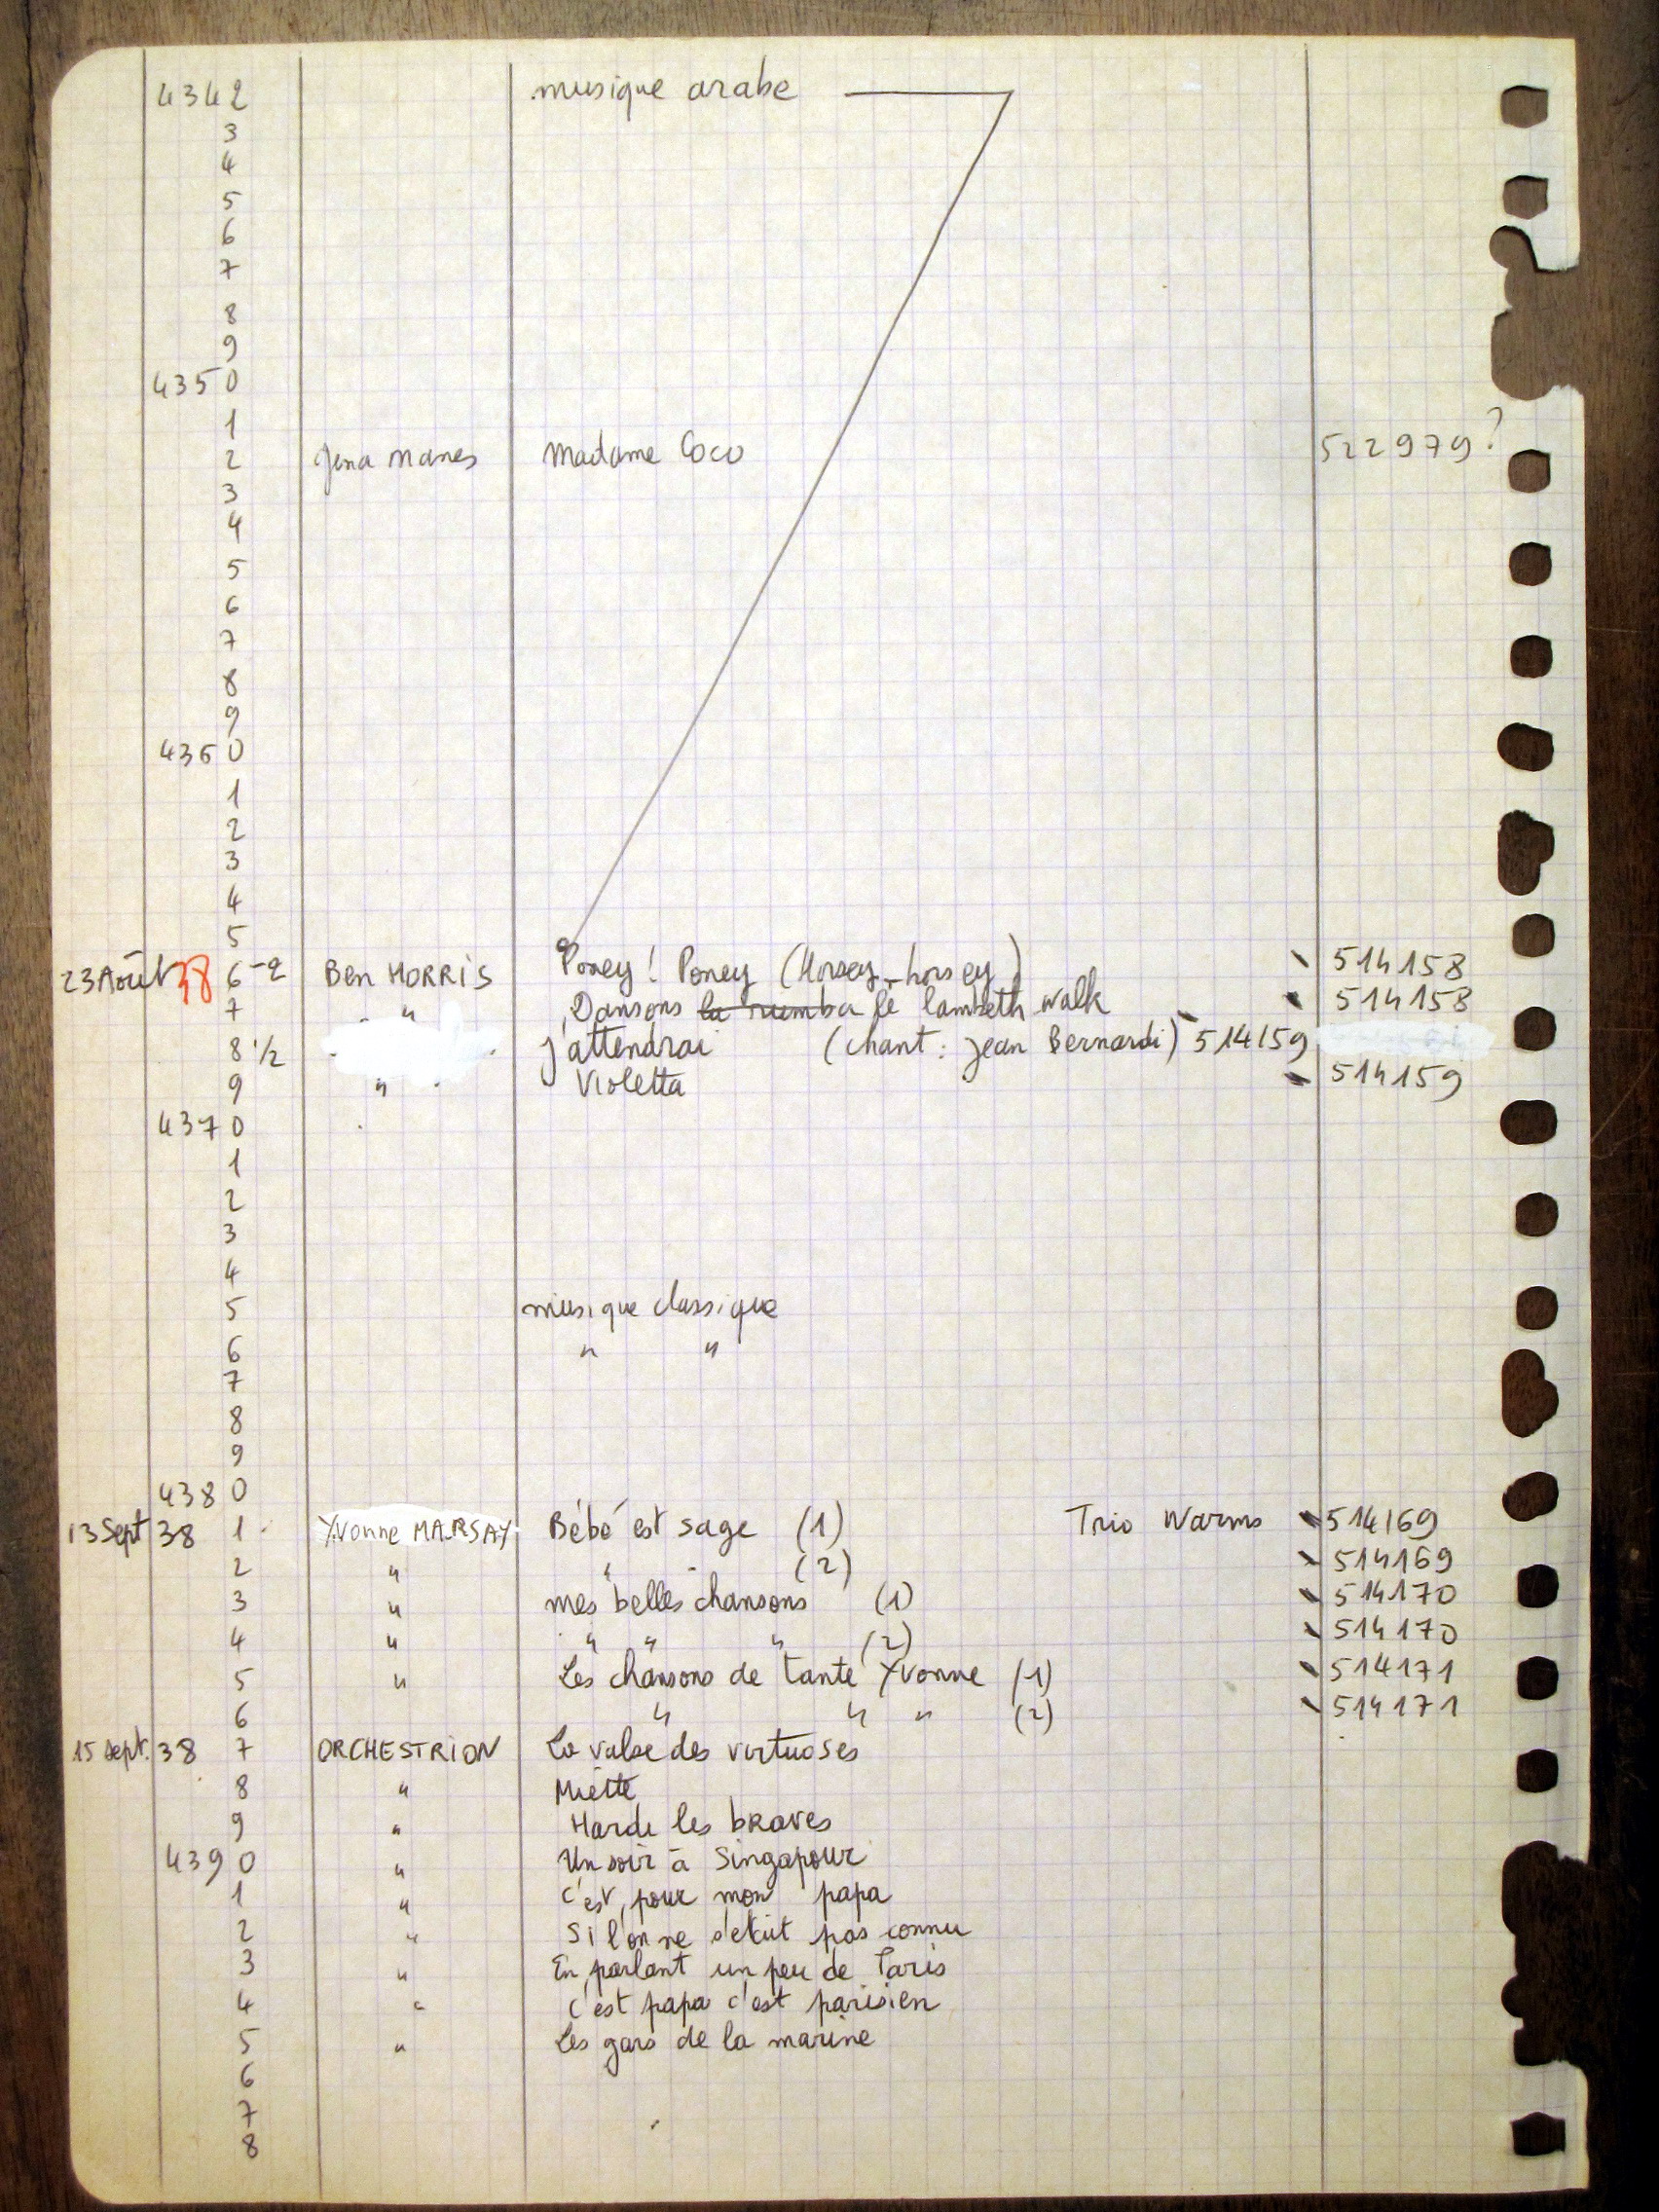 4342 musique arabe
3
4
5
6
7
8
9
4350
1
2 Jena Manes Madame Coco 522979?
3
4
5
6
7
8
9
4360
1
2
3
4
5
23 Août 38 6-2 Ben HORRIS Poney! Poney (Horsey-horsey) 514158
7 " Dansons la rumba le lambeth walk 514158
8 1/2 j'attendrai (chant: Jean Bernardi) 514159
9 " Violetta 514159
4370
1
2
3
4
5 musique classique
6 " "
7
8
9
4380
13 Sept 38 1 Yvonne MARSAY Bébé est sage (1) Trio Warms 514169
2 " " " (2) 514169
3 " mes belles chansons (1) 514170
4 " " " " (2) 514170
5 " Les chansons de tante Yvonne (1) 514171
6 " " " (2) 514171
15 sept. 38 7 ORCHESTRION La valse des virtuoses
8 " Miette
9 " Hardi les braves
4390 " Un soir à Singapour
1 " C'est pour mon papa
2 " Si l'on ne s'était pas connu
3 " En parlant un peu de Paris
4 " C'est papa c'est parisien
5 " Les gars de la marine
6
7
8